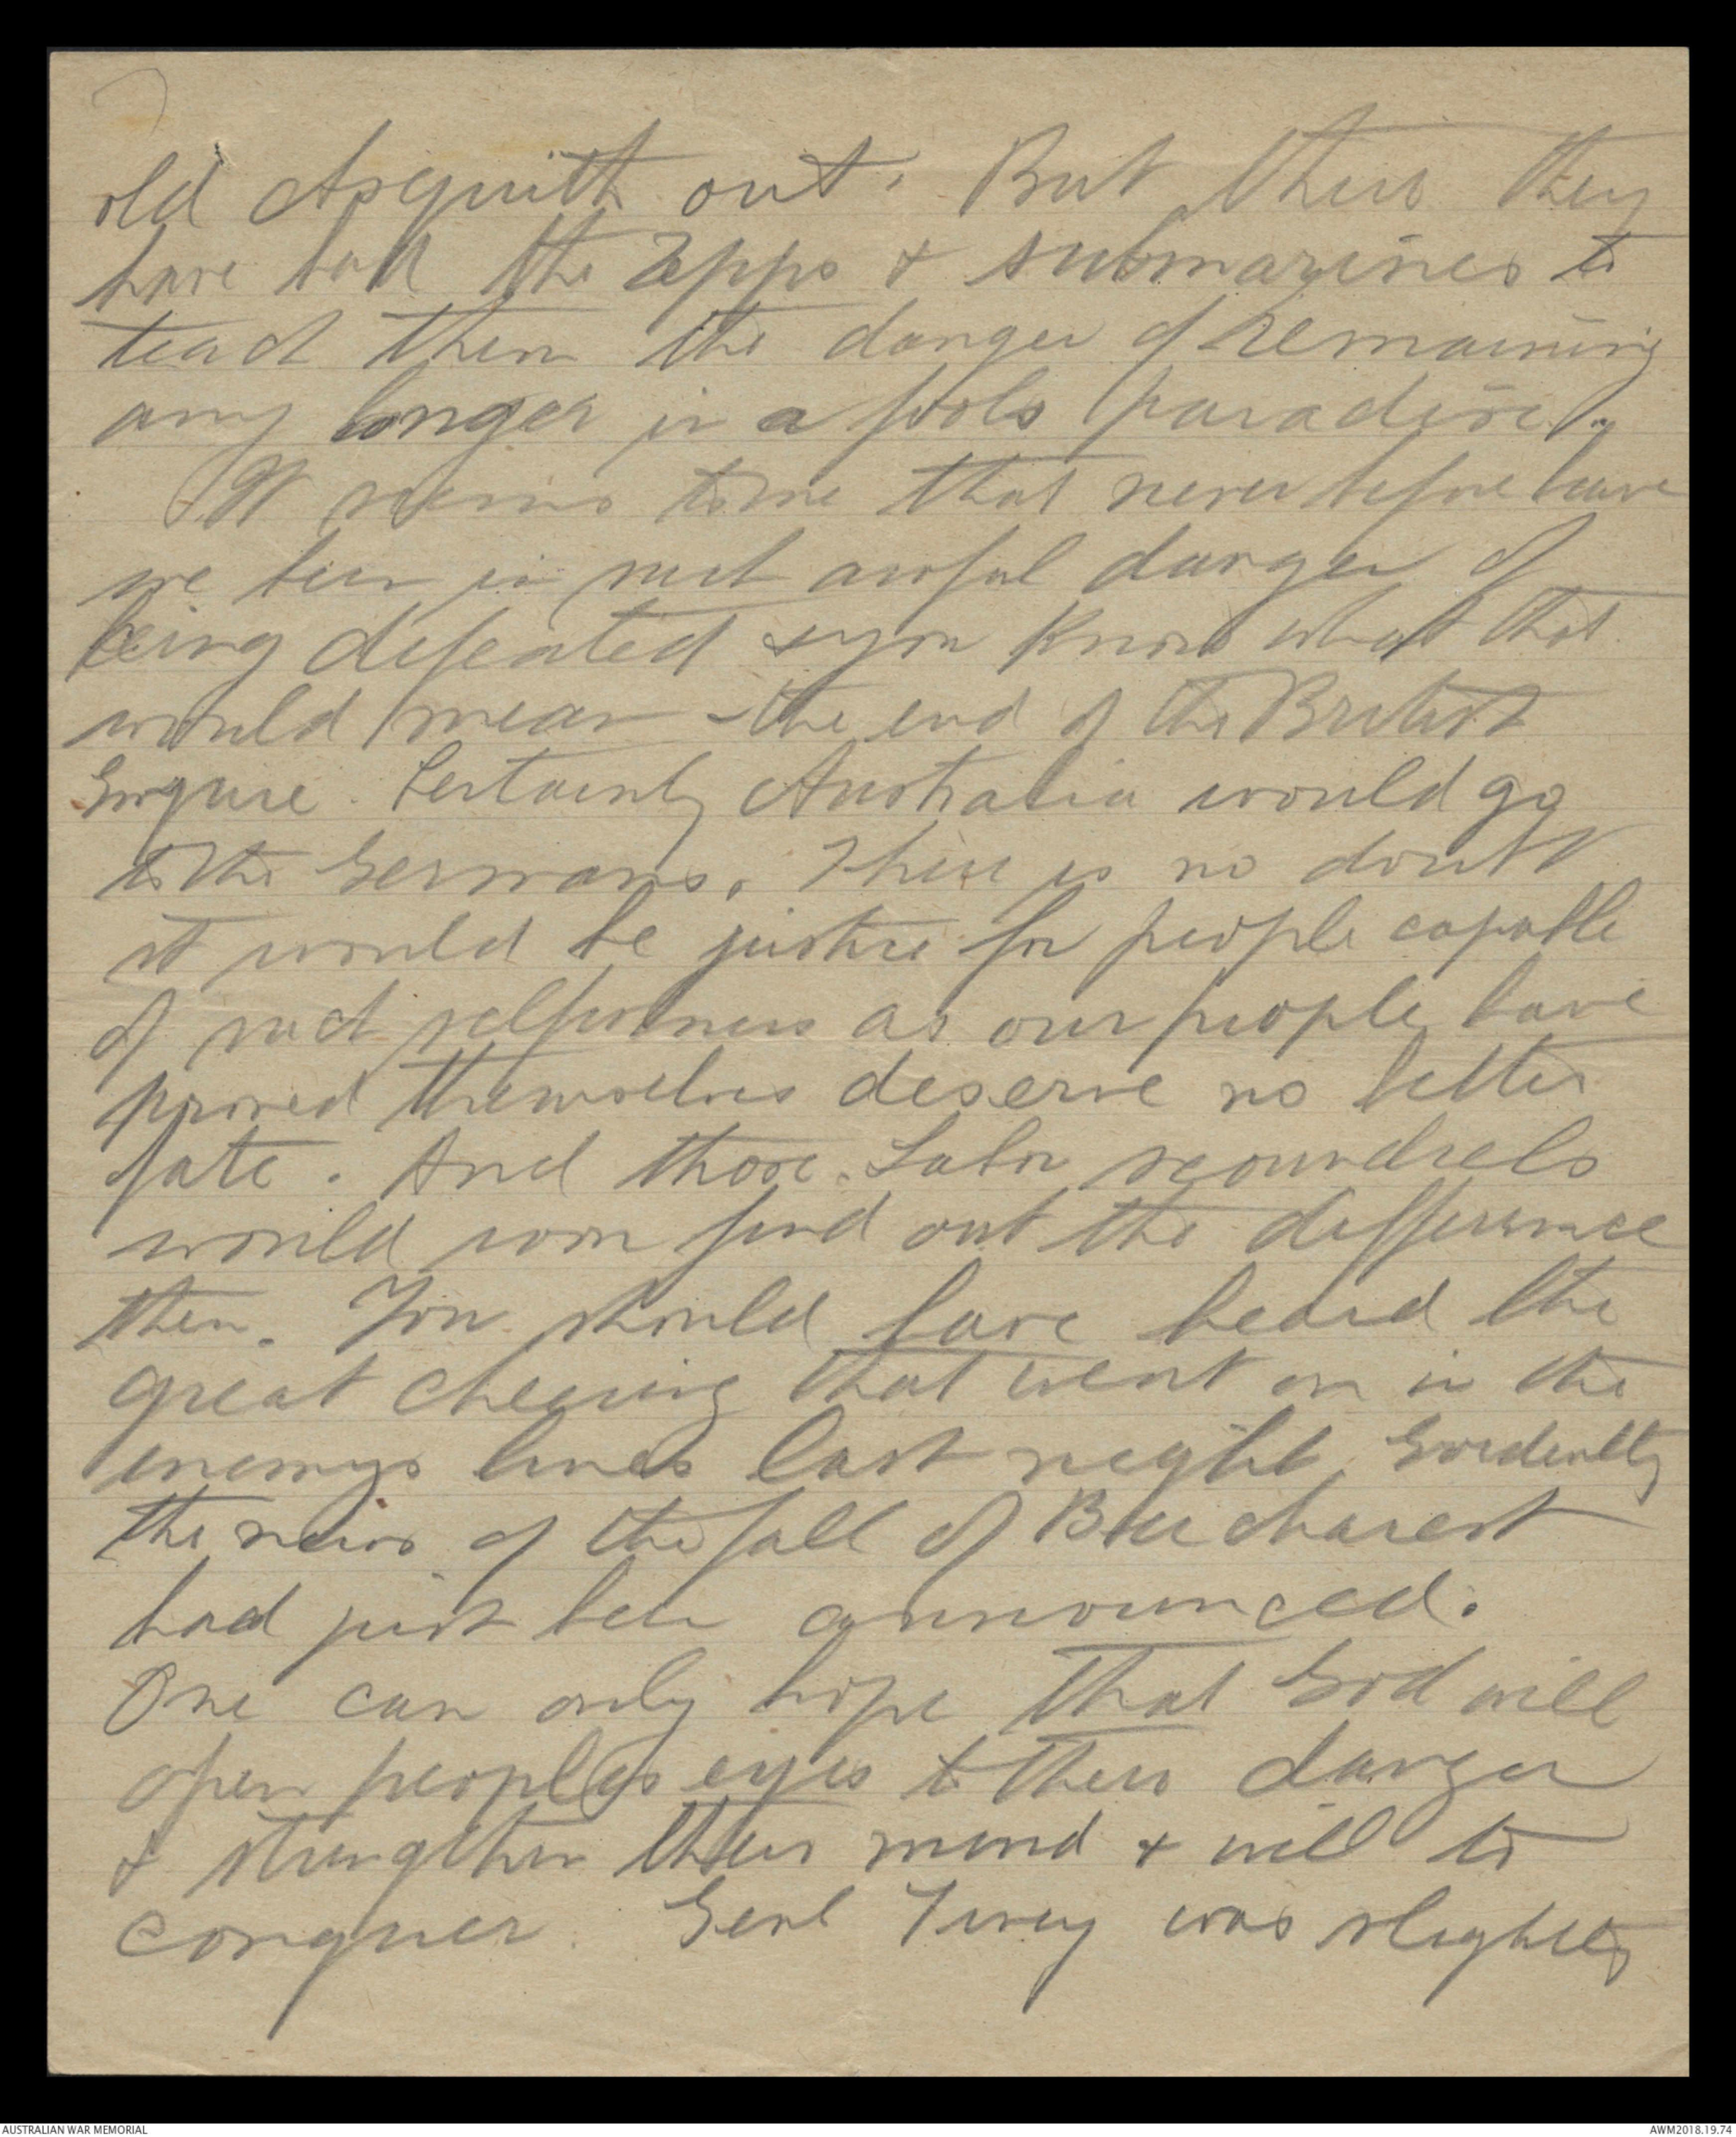 old Asquith out. But then they
have had the Zepps & submarines to
teach them the danger of remaining
any longer in a fools paradise.
It seems to me that never before have
we been in such awful danger of
being defeated & you know what that
would mean - the end of the British
Empire. Certainly Australia would go
to the Germans. There is no doubt
it would be justice for people capable
of such selfishness as our people have
proved themselves deserve no better
fate. And those Labor scoundrels
would soon find out the difference
then. You should have heard the
great cheering that went on in the
enemys lines last night. Evidently
the news of the fall of Bucharest
had just been announced.
One can only hope that God will
open peoples eyes to their danger
& strengthen their mind & will to
conquer. Genl Tivey was slightly
AUSTRALIAN WAR MEMORIAL
AWM2018.19.74